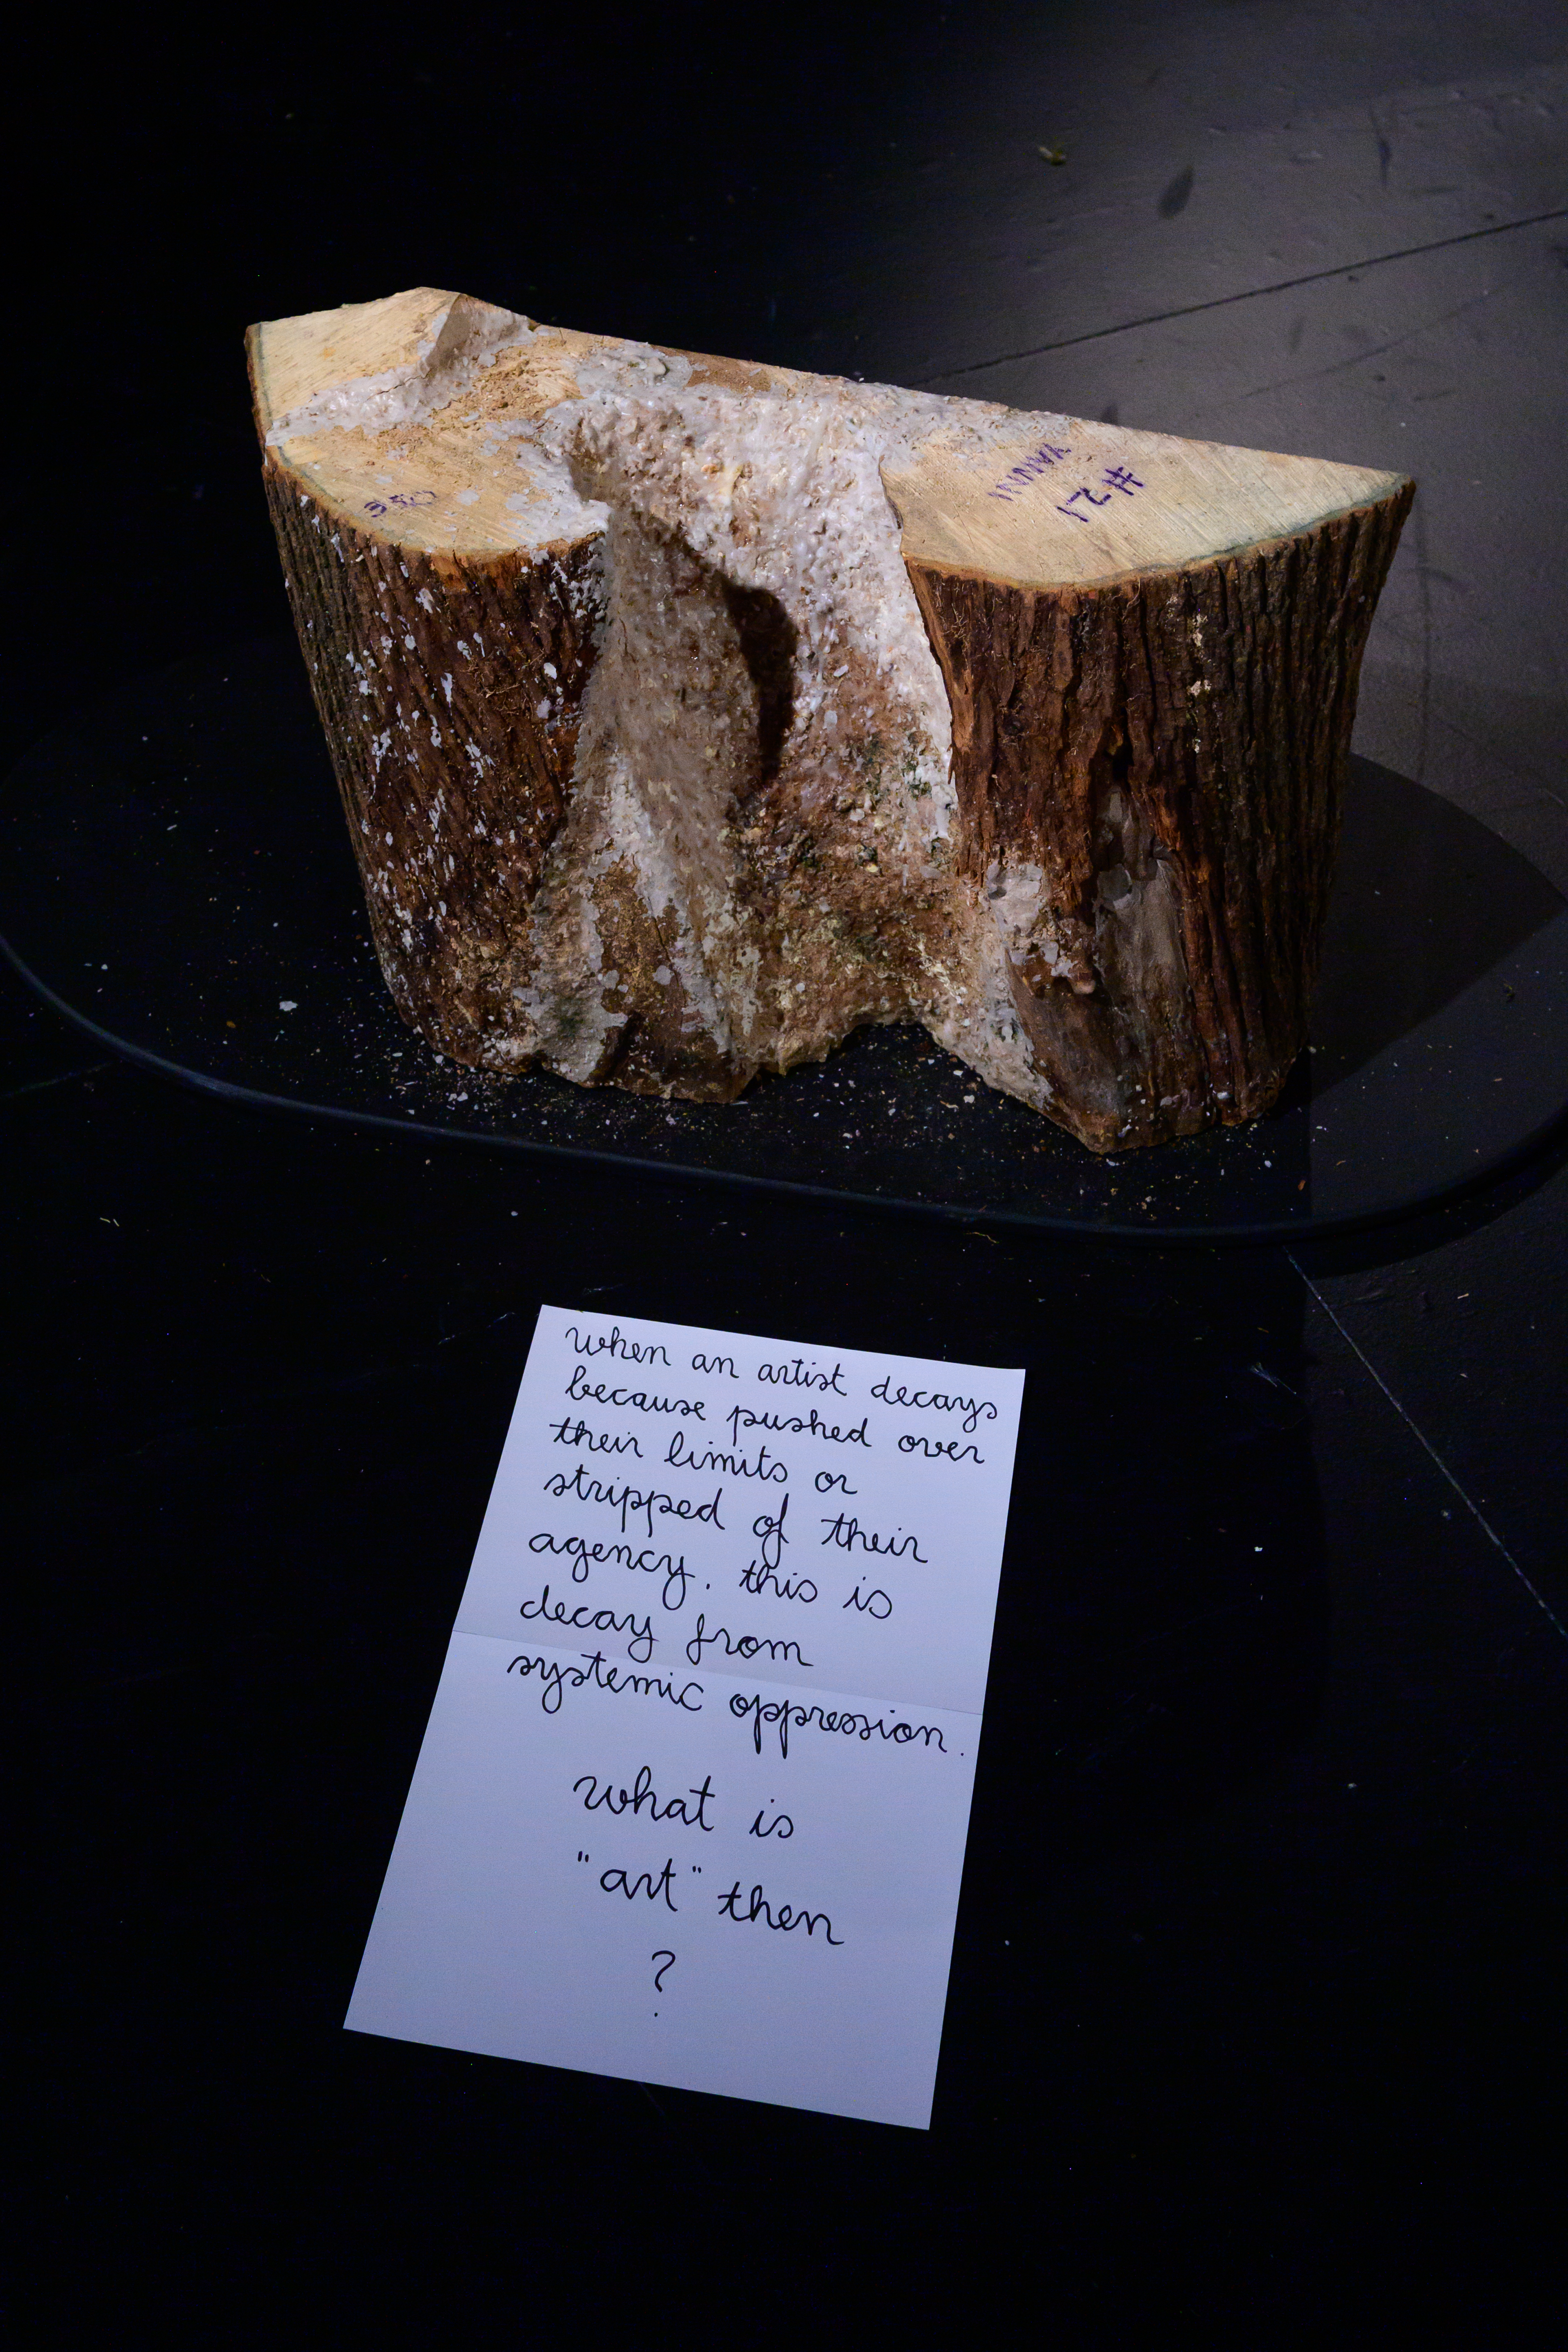 350
YANNI
#21
when an artist decays
because pushed over
their limits or
stripped of their
agency. this is
decay from
systemic oppression.
what is
"art" then
?